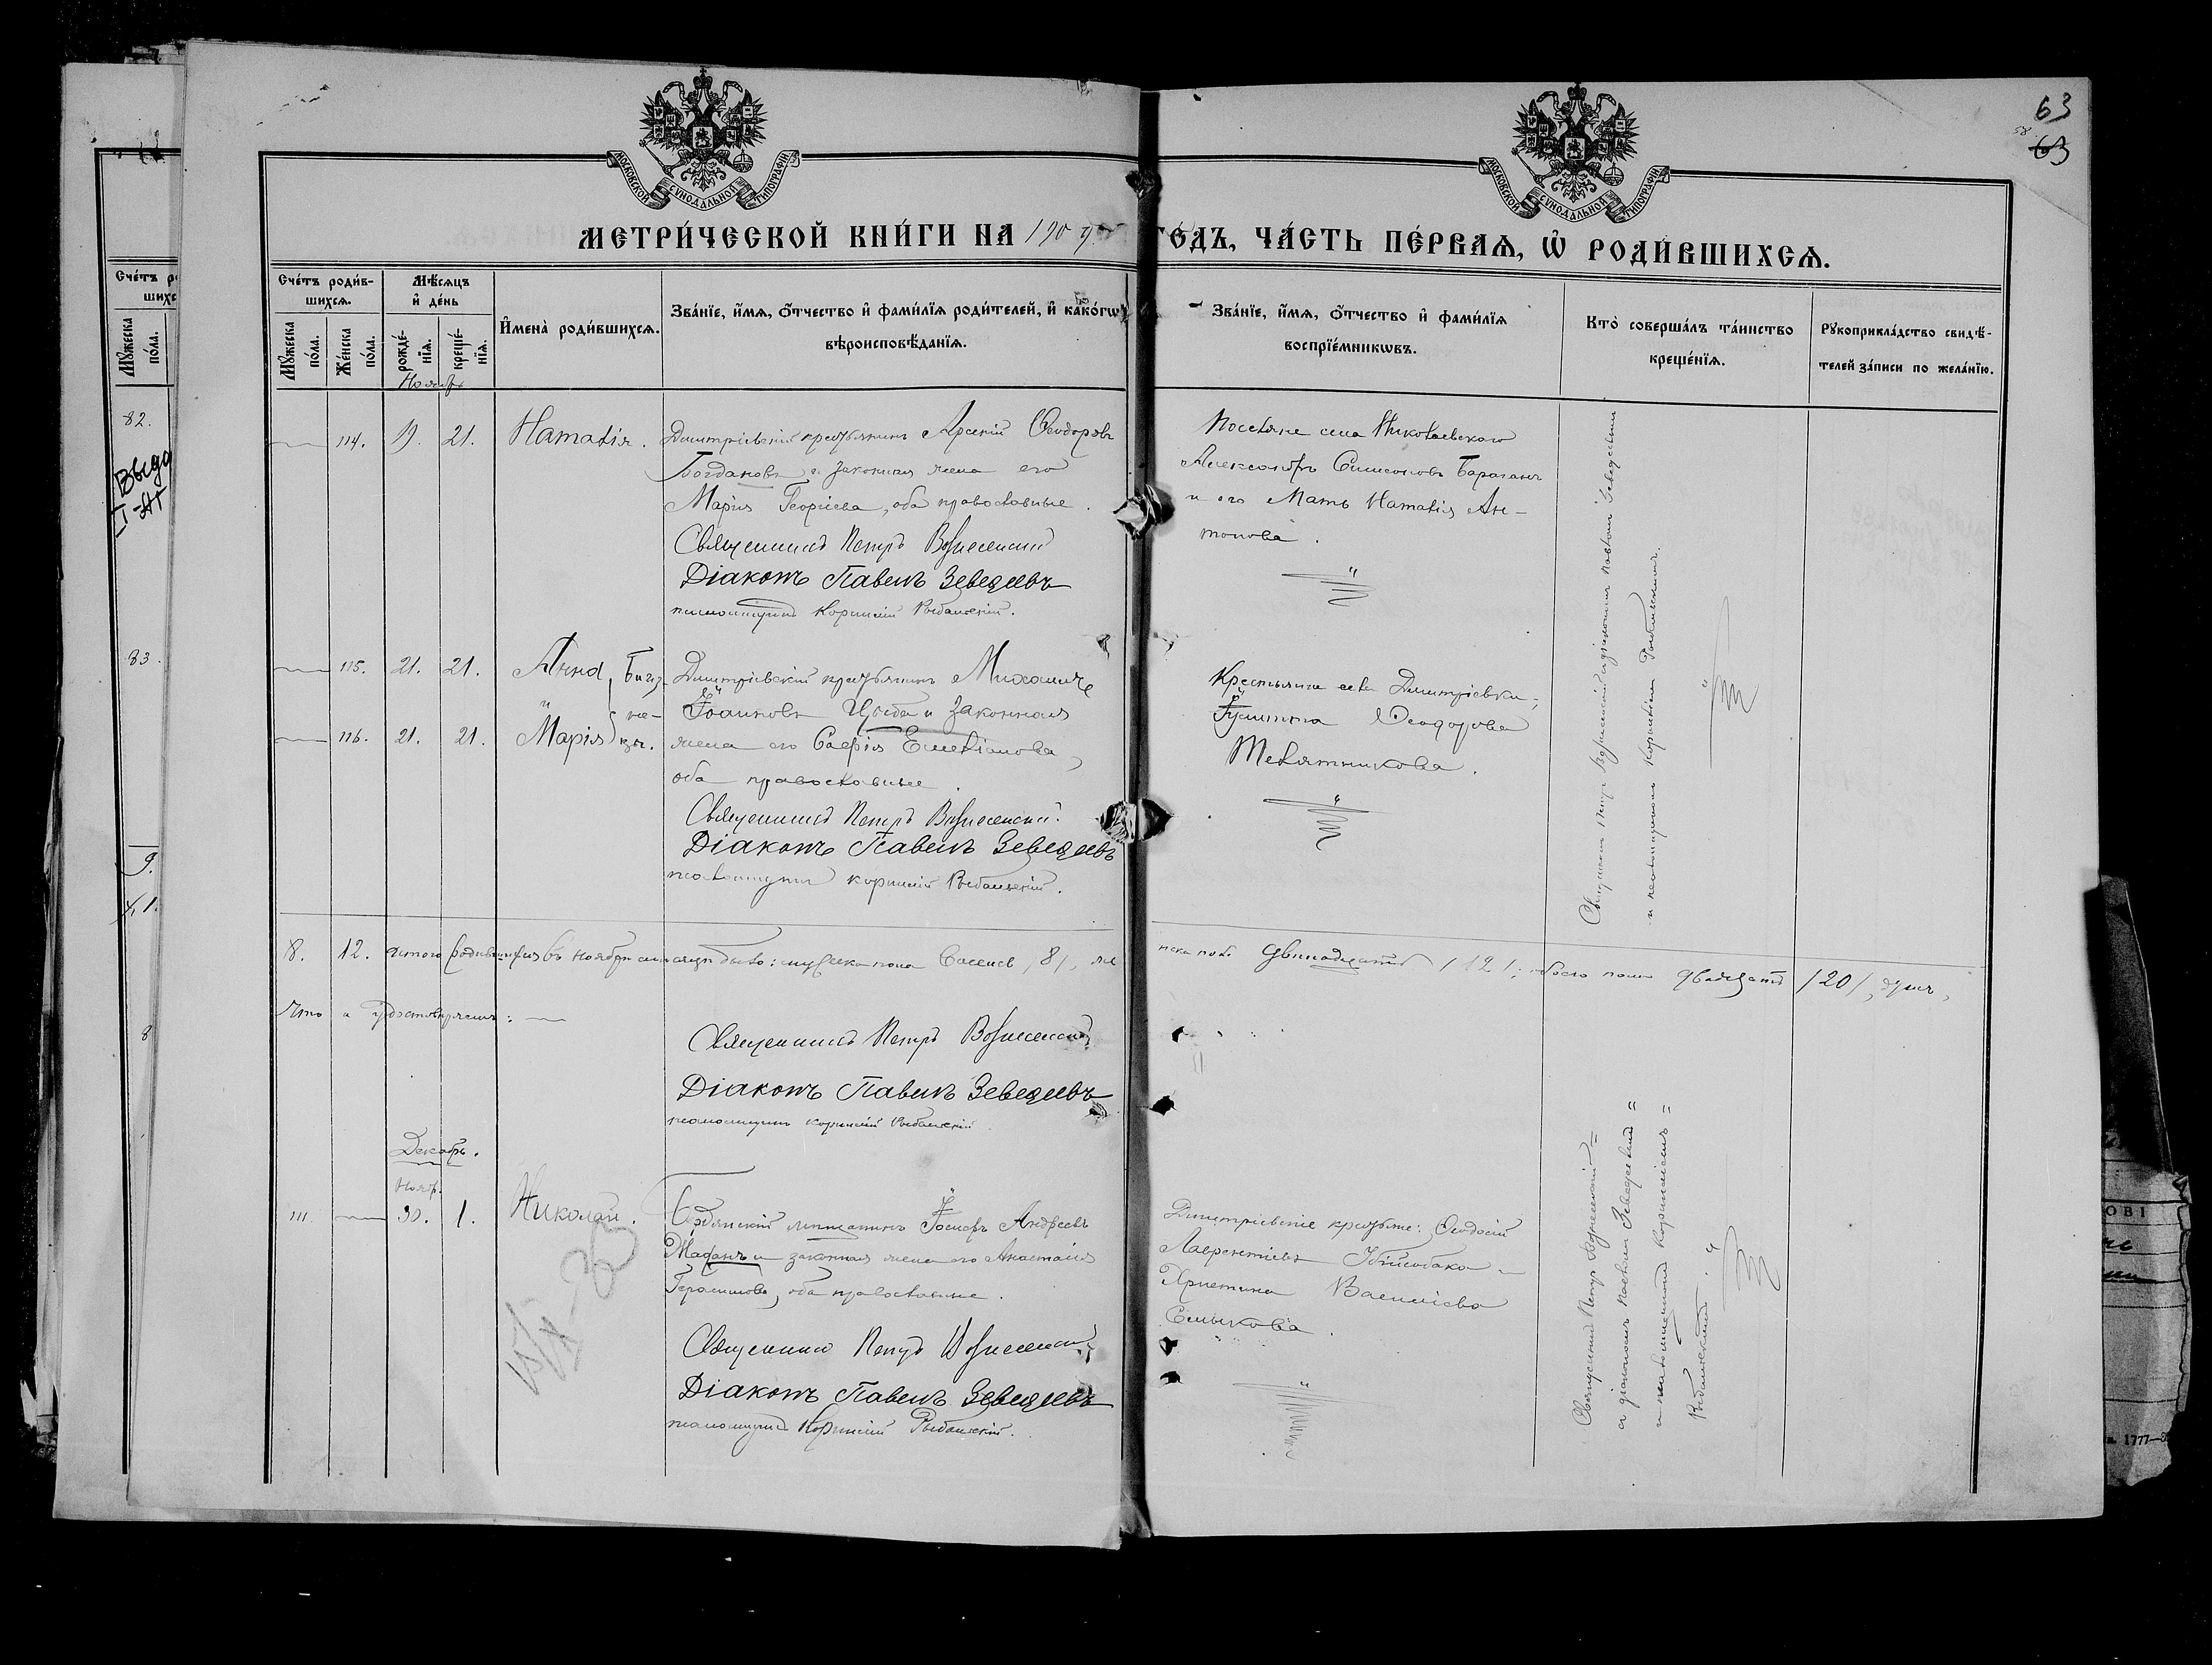 63
58
63
МОСКОВСКОЙ СѴНОДАЛЬНОЙ ТИПОГРАФІИ
МОСКОВСКОЙ СѴНОДАЛЬНОЙ ТИПОГРАФІИ
МЕТРИ́ЧЕСКОЙ КНИ́ГИ НА 190 ГО́ДЪ, ЧА́СТЬ ПЕ́РВАѦ, Ѡ҆ РОДИ́ВШИХСѦ.
Сче́тъ роди́в-
шихсѧ.
Мꙋ́жеска по́ла.
Же́нска по́ла.
Мѣ́сѧцъ и҆ де́нь
рожде́-нїѧ.
креще́-нїѧ.
И҆мена̀ роди́вшихсѧ.
Зва́нїе, и҆́мѧ, о҆́тчество и҆ фамй́лїѧ роди́телей, и҆ како́гѡ
вѣроисповѣ́данїѧ.
Зва́нїе, и҆́мѧ, о҆́тчество и҆ фамй́лїѧ
воспрїе́мникѡвъ.
Кто̀ соверша́лъ та́инство
креще́нїѧ.
Рꙋкоприкла́дство свидѣ́-
телей за́писи по жела́нїю.
Ноябрь
114. 19. 21. Наталія.
Димитріевскій крестьянинъ Арсеній Ѳеодоровъ
Богдановъ и законная жена его
Марія Георгіева, оба православные.
Священникъ Петръ Вознесенскій
Діаконъ Павелъ Зеведеевъ
псаломщикъ Корнилій Рыбальскій.
Поселяне села Николаевскаго
Александръ Симеоновъ Бараганъ
и его мать Наталія Ан-
тонова.
Священникъ Петръ Вознесенскій съ діакономъ Павломъ Зеведеевымъ
и псаломщикомъ Корниліемъ Рыбальскимъ.
115. 21. 21. Анна,
116. 21. 21. Марія
близ-
не-
цы.
Димитріевскій крестьянинъ Михаилъ
Іоанновъ Цыба и законная
жена его Софія Емеліанова,
оба православные.
Священникъ Петръ Вознесенскій.
Діаконъ Павелъ Зеведеевъ
псаломщикъ Корнилій Рыбальскій.
Крестьянка села Димитріевки,
Іустина Ѳеодорова
Телятникова.
8. 12. Итого родившихся въ ноябрѣ мѣсяцѣ было: мужеска пола восемь /8/, женска пола двѣнадцать /12/, обоего пола двадцать /20/ душъ,
Что и удостовѣряемъ:
Священникъ Петръ Вознесенскій
Діаконъ Павелъ Зеведеевъ
псаломщикъ Корнилій Рыбальскій
Декабрь.
Нояб.
111. 30. 1. Николай.
Бердянскій мѣщанинъ Іосифъ Андреевъ
и законная жена его Анастасія
Герасимова, оба православные.
Священникъ Петръ Вознесенскій
Діаконъ Павелъ Зеведеевъ
псаломщикъ Корнилій Рыбальскій.
Димитріевскіе крестьяне: Ѳеодосій
Лаврентіевъ Убійсобака и
Христина Василіева
Священникъ Петръ Вознесенскій
съ діакономъ Павломъ Зеведеевымъ
и псаломщикомъ Корниліемъ
Рыбальскимъ.
82.
83.
9.
8
1777—3